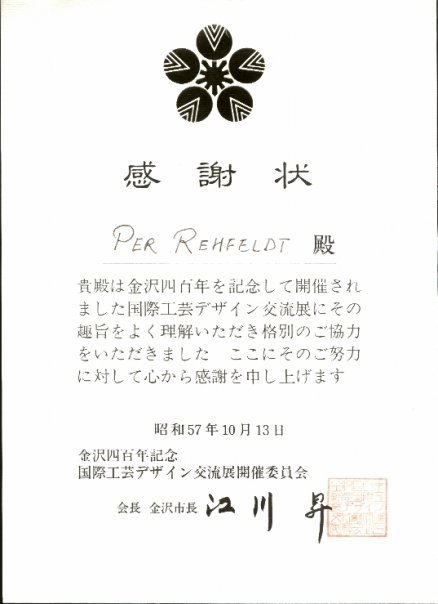 感謝状
PER REHFELDT 殿
貴殿は金沢四百年を記念して開催され
ました国際工芸デザイン交流展にその
趣旨をよく理解いただき格別のご協力
をいただきました　ここにそのご努力
に対して心から感謝を申し上げます
昭和57年10月13日
金沢四百年記念
国際工芸デザイン交流展開催委員会
会長 金沢市長 江川 昇